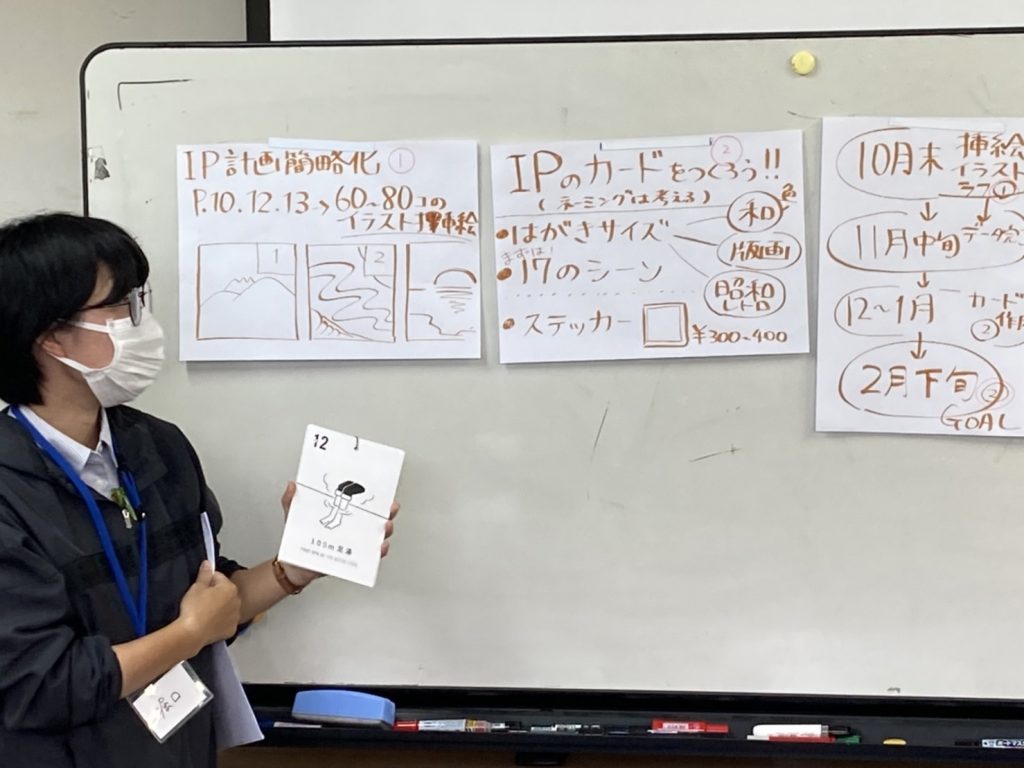 IP計画簡略化 ①
P.10.12.13→60~80コの
イラスト挿絵
1
2
IPのカードをつくろう!! ②
(ネーミングは考える)
•はがきサイズ
和 色
版画
まずは!
•17のシーン
昭和
レトロ
•ステッカー
¥300~400
10月末
挿絵
イラスト
ラフ①
11月中旬
データ完
12~1月
カード
作
②
2月下旬 ②
GOAL
12
105m足湯